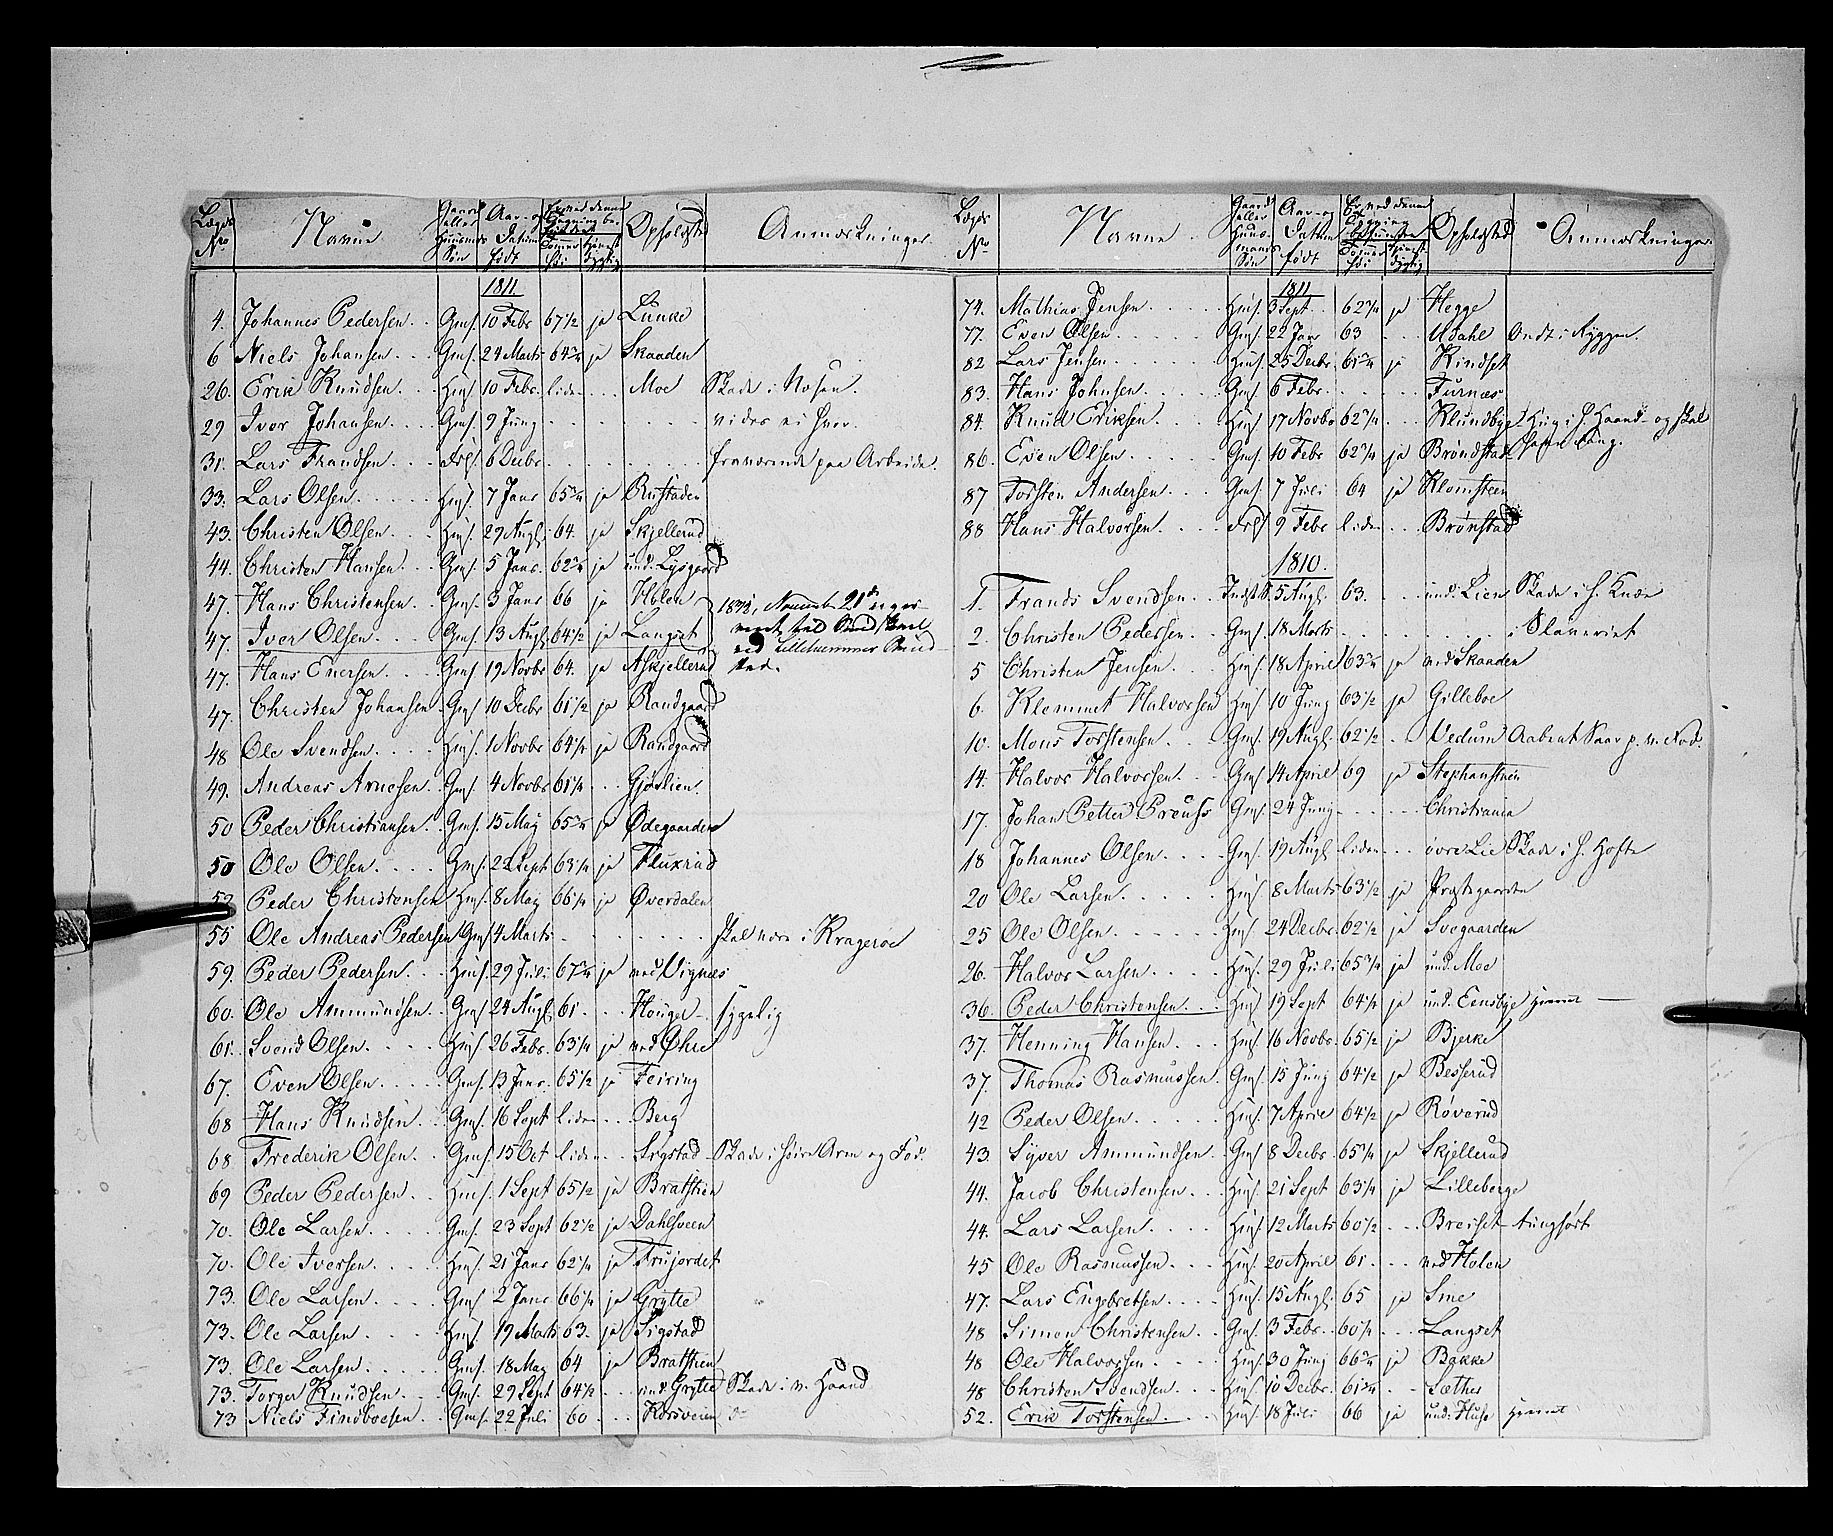 Lægds No Navne Gaard eller Huusmands Søn Aar og Datum født Tommer høi tjenestdygtig Opholdsted Anmærkninger
1811
4. Johannes Pedersen Gms. 10 Febr 67 1/2 ja Lunke
6 Niels Johansen Gms. 24 Marts 64 3/4 ja Skaaden
26. Erik Knudsen Hms. 10 Febr. liden Moe Skade i Næsen.
29 Iver Johansen Gms. 9 Juny vides ei hvor.
31. Lars Frandsen 6 Decbr fraværende paa Arbeide.
33. Lars Olsen Hms. 7 Janr 65 3/4 ja Rustaden
43. Christen Olsen Hms. 29 Augl. 64. ja Skjellerud
44. Christen Hansen Gms. 5 Janr. 62 3/4 ja und. Lysgaard
47. Hans Christensen Gms. 3 Janr 66 ja Holen
47. Iver Olsen Gms. 13 Augl 64 1/2 ja Langset
ved Lillehammer
47. Hans Eversen Gms. 19 Novbr 64. ja Askjellerud
47. Christen Johansen Gms. 10 Decbr 61 1/2 ja Randgaard
48 Ole Svendsen Hms. 1 Novbr 64 1/4 ja Randgaard
49. Andreas Arnesen Gms. 4 Novbr 61 1/4 Gjøslien
50 Peder Christiansen Gms. 15 May 65 3/4 ja Ødegaarden
50 Ole Olsen Hms. 22 Sept 63 1/4 ja Fluxrud
52 Peder Christensen Hms. 8 May 66 1/4 ja Øverdalen
55 Ole Andreas Pedersen Gms 4 Marts skal være i Kragerøe
59. Peder Pedersen Hms. 29 Juli 67 3/4 ja ved Vignæs
60. Ole Ammundsen Gms 24 Augl 61 Houger sygelig
61. Svend Olsen Hms. 26 Febr. 63 1/4 ja ved Øhre
67. Even Olsen Gms. 13 Janr. 65 1/2 ja Feiring
68 Hans Knudsen Gms. 16 Sept liden Berg
68 Frederik Olsen Gms. 15 Oct liden Sigstad Skade i høire Arm og Fod.
69 Peder Pedersen Hms. 1 Sept 65 1/2 ja Brattlien
70. Ole Larsen Gms. 23 Sept 62 1/2 ja Dahlsveen
70. Ole Iversen Hms. 21 Janr 62 1/4 ja Frujordet
73. Ole Larsen Gms. 2 Janr 66 1/4 ja Grytte
73. Ole Larsen Hms. 19 Marts 63. ja Sigstad
73. Ole Larsen Gms. 18 May 64 ja Brattlien
73. Torger Knudsen Gms. 29 Sept 64 1/2 und. Grytte Skade i v. Haand
73 Niels Findboesen Gms. 22 Juli 60 Korsveien do
Lægds No Navne Gaard eller Huusmands Søn Aar og Datum født Tommer høi tjenestdygtig Opholdsted Anmærkninger
1811
74. Mathias Jensen Hms. 3 Sept. 62 3/4 ja Hegge
77. Even Olsen Gms. 22 Janr 63 Udahl Ondt i Ryggen.
82 Lars Jensen Hms. 25 Decbr. 61 3/4 ja Kindset
83. Hans Johnsen Gms. 6 Febr. Furnæs
84. Knud Eriksen Hms. 17 Novbr 62 3/4 Klundbye Hug i h. Haand og skal
86. Even Olsen Gms. 10 Febr 62 3/4 ja Brøndstad
87 Torsten Andersen Gms. 7 Juli 64 ja Klomsteen
88 Hans Halvorsen 9 Febr liden Brønstad
1810.
1. Frands Svendsen 5 Augl. 63. und. Lien Skade i h. Knæe
2. Christen Pedersen Gms. 18 Marts i Slaveriet
5 Christen Jensen Hms. 18 April 63 3/4 ja ved Skaaden
6. Klemmet Halvorsen Hms. 10 Juny 63 1/2 ja Gilleboe
10. Mons Torstensen Gms. 19 Augl. 62 1/2 Vedum Aabent Saar p. v. Fod.
14. Halvor Halvorsen Gms. 14 April 69 ja Stephanstuen
17. Johan Petter Preuss Gms. 24 Juny Christiania
18 Johannes Olsen Gms. 19 Augl liden øvre Lie Skade i h. Hofte
20 Ole Larsen Hms. 8 Marts 63 1/2 ja Præstgaarden
25 Ole Olsen Hms. 24 Decbr 62 1/2 ja Svegaarden
26. Halvor Larsen Hms. 29 Juli 65 3/4 ja und. Moe
36. Peder Christensen Hms. 19 Sept 64 1/4 ja und. Eensbye
37. Henning Hansen Hms. 16 Novbr. 65 1/2 ja Bjerke
37. Thomas Rasmussen Gms. 15 Juny 64 1/2 ja Besserud
42 Peder Olsen Hms. 7 April 64 1/2 ja Røverud
43. Syver Ammundsen Gms. 8 Decbr. 65 3/4 ja Skjellerud
44. Jacob Christensen Hms. 21 Sept 63 1/4 ja Lilleberge
44. Lars Larsen Hms. 12 Marts 60 1/2 Breiset tunghørt
45 Ole Rasmussen Hms. 20 April 61 ved Holen
47. Lars Engebretsen Hms. 15 Augl. 65 ja Sme
48 Simon Christensen Gms. 3 Febr. 60 1/2 Langset
48 Ole Halvorsen Hms. 30 Juny 66 3/4 ja Bakke
48 Christen Svendsen Hms. 10 Decbr. 61 3/4 Sæther
52. Erik Torstensen Hms. 18 Juli 66 ja und. Huse